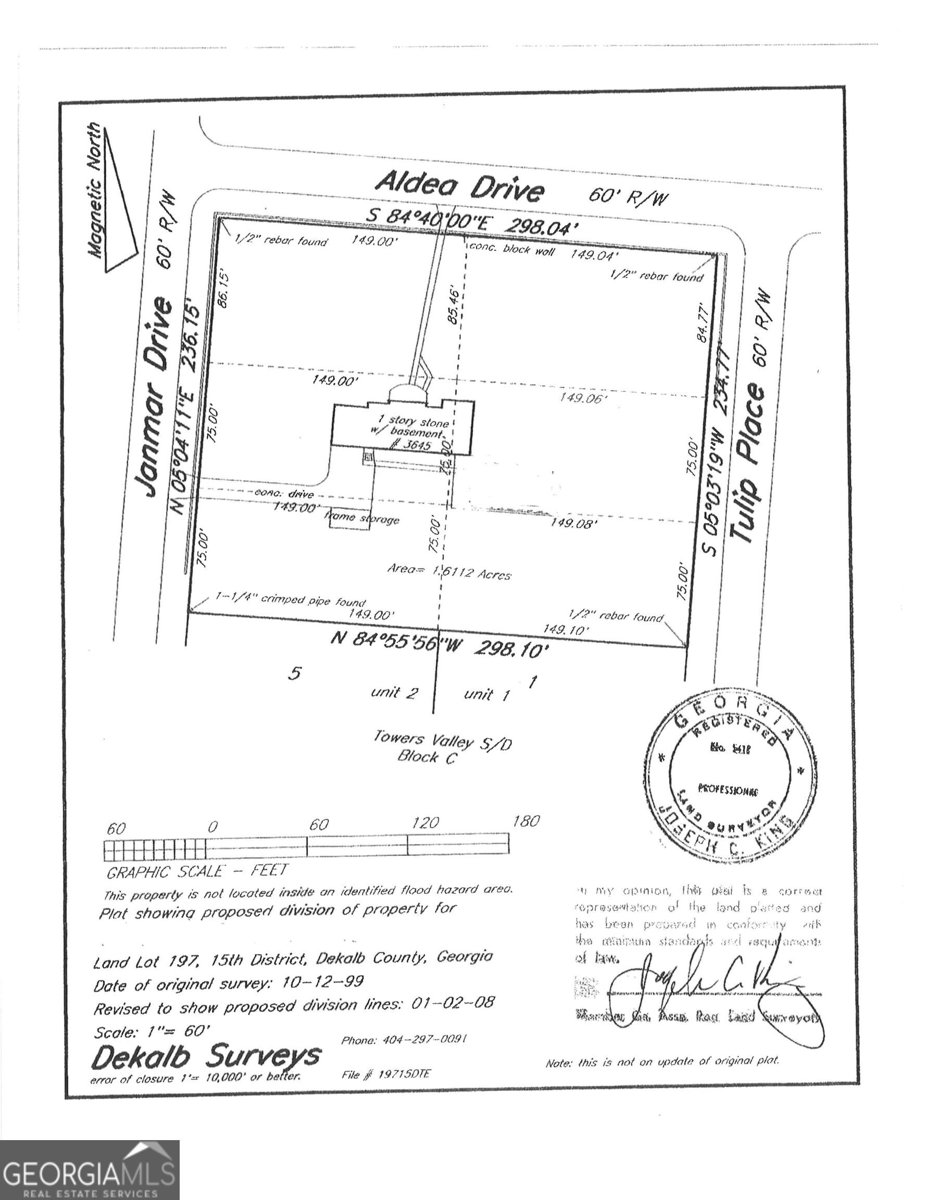 Magnetic North
Aldea Drive 60' R/W
S 84°40'00"E 298.04'
1/2" rebar found 149.00' conc. block wall 149.04'
1/2" rebar found
Janmar Drive 60' R/W
N 05°04'11"E 236.15'
86.15'
85.46'
84.77'
Tulip Place 60' R/W
S 05°03'19"W 234.77'
149.00'
149.06'
1 story stone
w/ basement
# 3645
75.00'
75.00'
75.00'
conc. drive
149.00'
frame storage
149.08'
75.00'
75.00'
75.00'
Area= 1.6112 Acres
1-1/4" crimped pipe found
149.00'
1/2" rebar found
149.10'
N 84°55'56"W 298.10'
5
1
unit 2 unit 1
Towers Valley S/D
Block C
GEORGIA
REGISTERED
No.
PROFESSIONAL
LAND SURVEYOR
JOSEPH C. KING
60 0 60 120 180
GRAPHIC SCALE - FEET
This property is not located inside an identified flood hazard area.
Plat showing proposed division of property for
Land Lot 197, 15th District, Dekalb County, Georgia
Date of original survey: 10-12-99
Revised to show proposed division lines: 01-02-08
Scale: 1"= 60'
Dekalb Surveys
Phone: 404-297-0091
error of closure 1'= 10,000' or better.
File # 19715DTE
In my opinion, this plat is a correct
representation of the land platted and
has been prepared in conformity with
the minimum standards and requirements
of law.
Joseph C. King
Member Ga. Assn. Reg. Land Surveyors
Note: this is not an update of original plat.
GEORGIAMLS
REAL ESTATE SERVICES